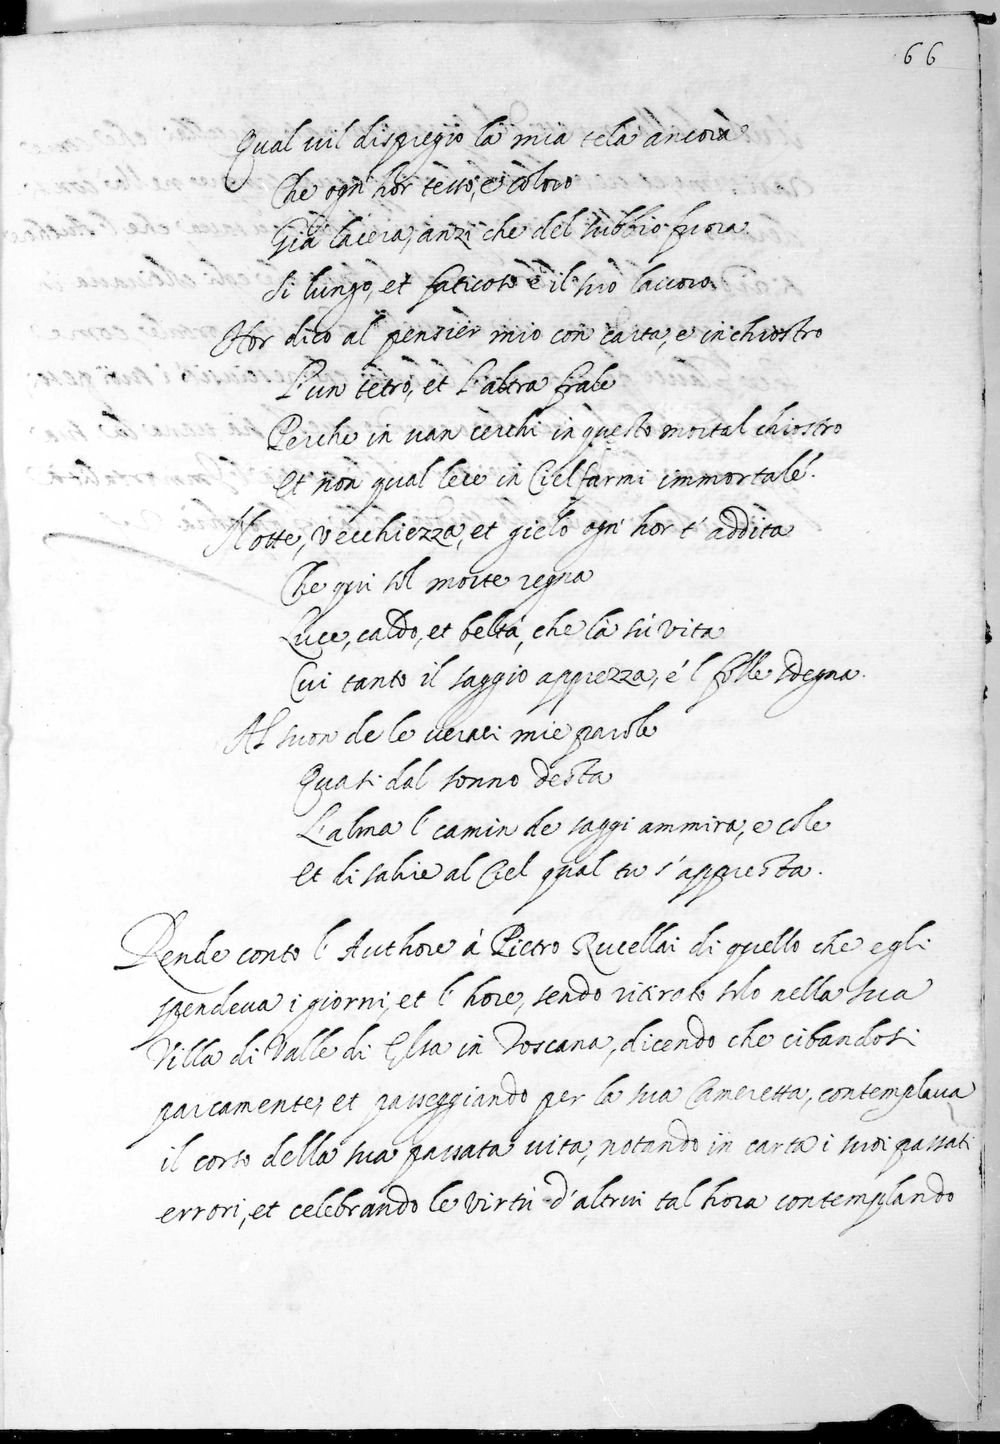 66
Qual vil dispregio la mia tela ancora
Che ogn' hor tesso, e coloro
Già lacera, anzi che del subbio fuora
Si lungo, et faticoso è il suo lavoro.
Hor dico al pensier mio con carta, e inchiostro
L'un tetro, et l'altra frale
Perche in van cerchi in questo mortal chiostro
Et non qual lece in Ciel farmi immortale.
Notte, vecchiezza, et gielo ogn' hor t' addita
Che qui sol morte regna
Luce, caldo, et beltá, che là sú vita
Cui tanto il saggio apprezza, é 'l folle sdegna.
Al suon de le veraci mie parole
Quasi dal sonno desta
L'alma l' camin de saggi ammira, e cole
Et di salire al Ciel qual tu s'appresta.
Rende conto l' Authore á Pietro Rucellai di quello che egli
spendeva i giorni, et l' hore, sendo ritirato solo nella sua
Villa di Valle di Elsa in Toscana, dicendo che cibandosi
parcamente, et passeggiando per la sua Cameretta, contemplava
il corso della sua passata vita, notando in carta i suoi passati
errori, et celebrando le virtù d'altrui tal hora contemplando